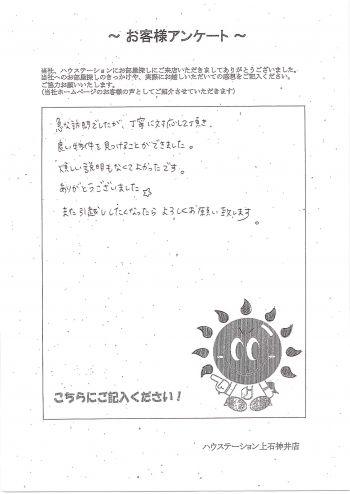 ～ お客様アンケート ～
当社、ハウステーションにお部屋探しにご来店いただきましてありがとうございました。
当社へのお部屋探しのきっかけや、実際にお越しいただいての感想をご記入ください。
ご協力お願いいたします。
(当社ホームページのお客様の声としてご紹介させていただきます)
急な訪問でしたが、丁寧に対応して頂き、
良い物件を見つけることができました。
難しい説明もなくてよかったです。
ありがとうございました
また引越ししたくなったら よろしくお願い致します。
こちらにご記入ください！
ハウステーション上石神井店